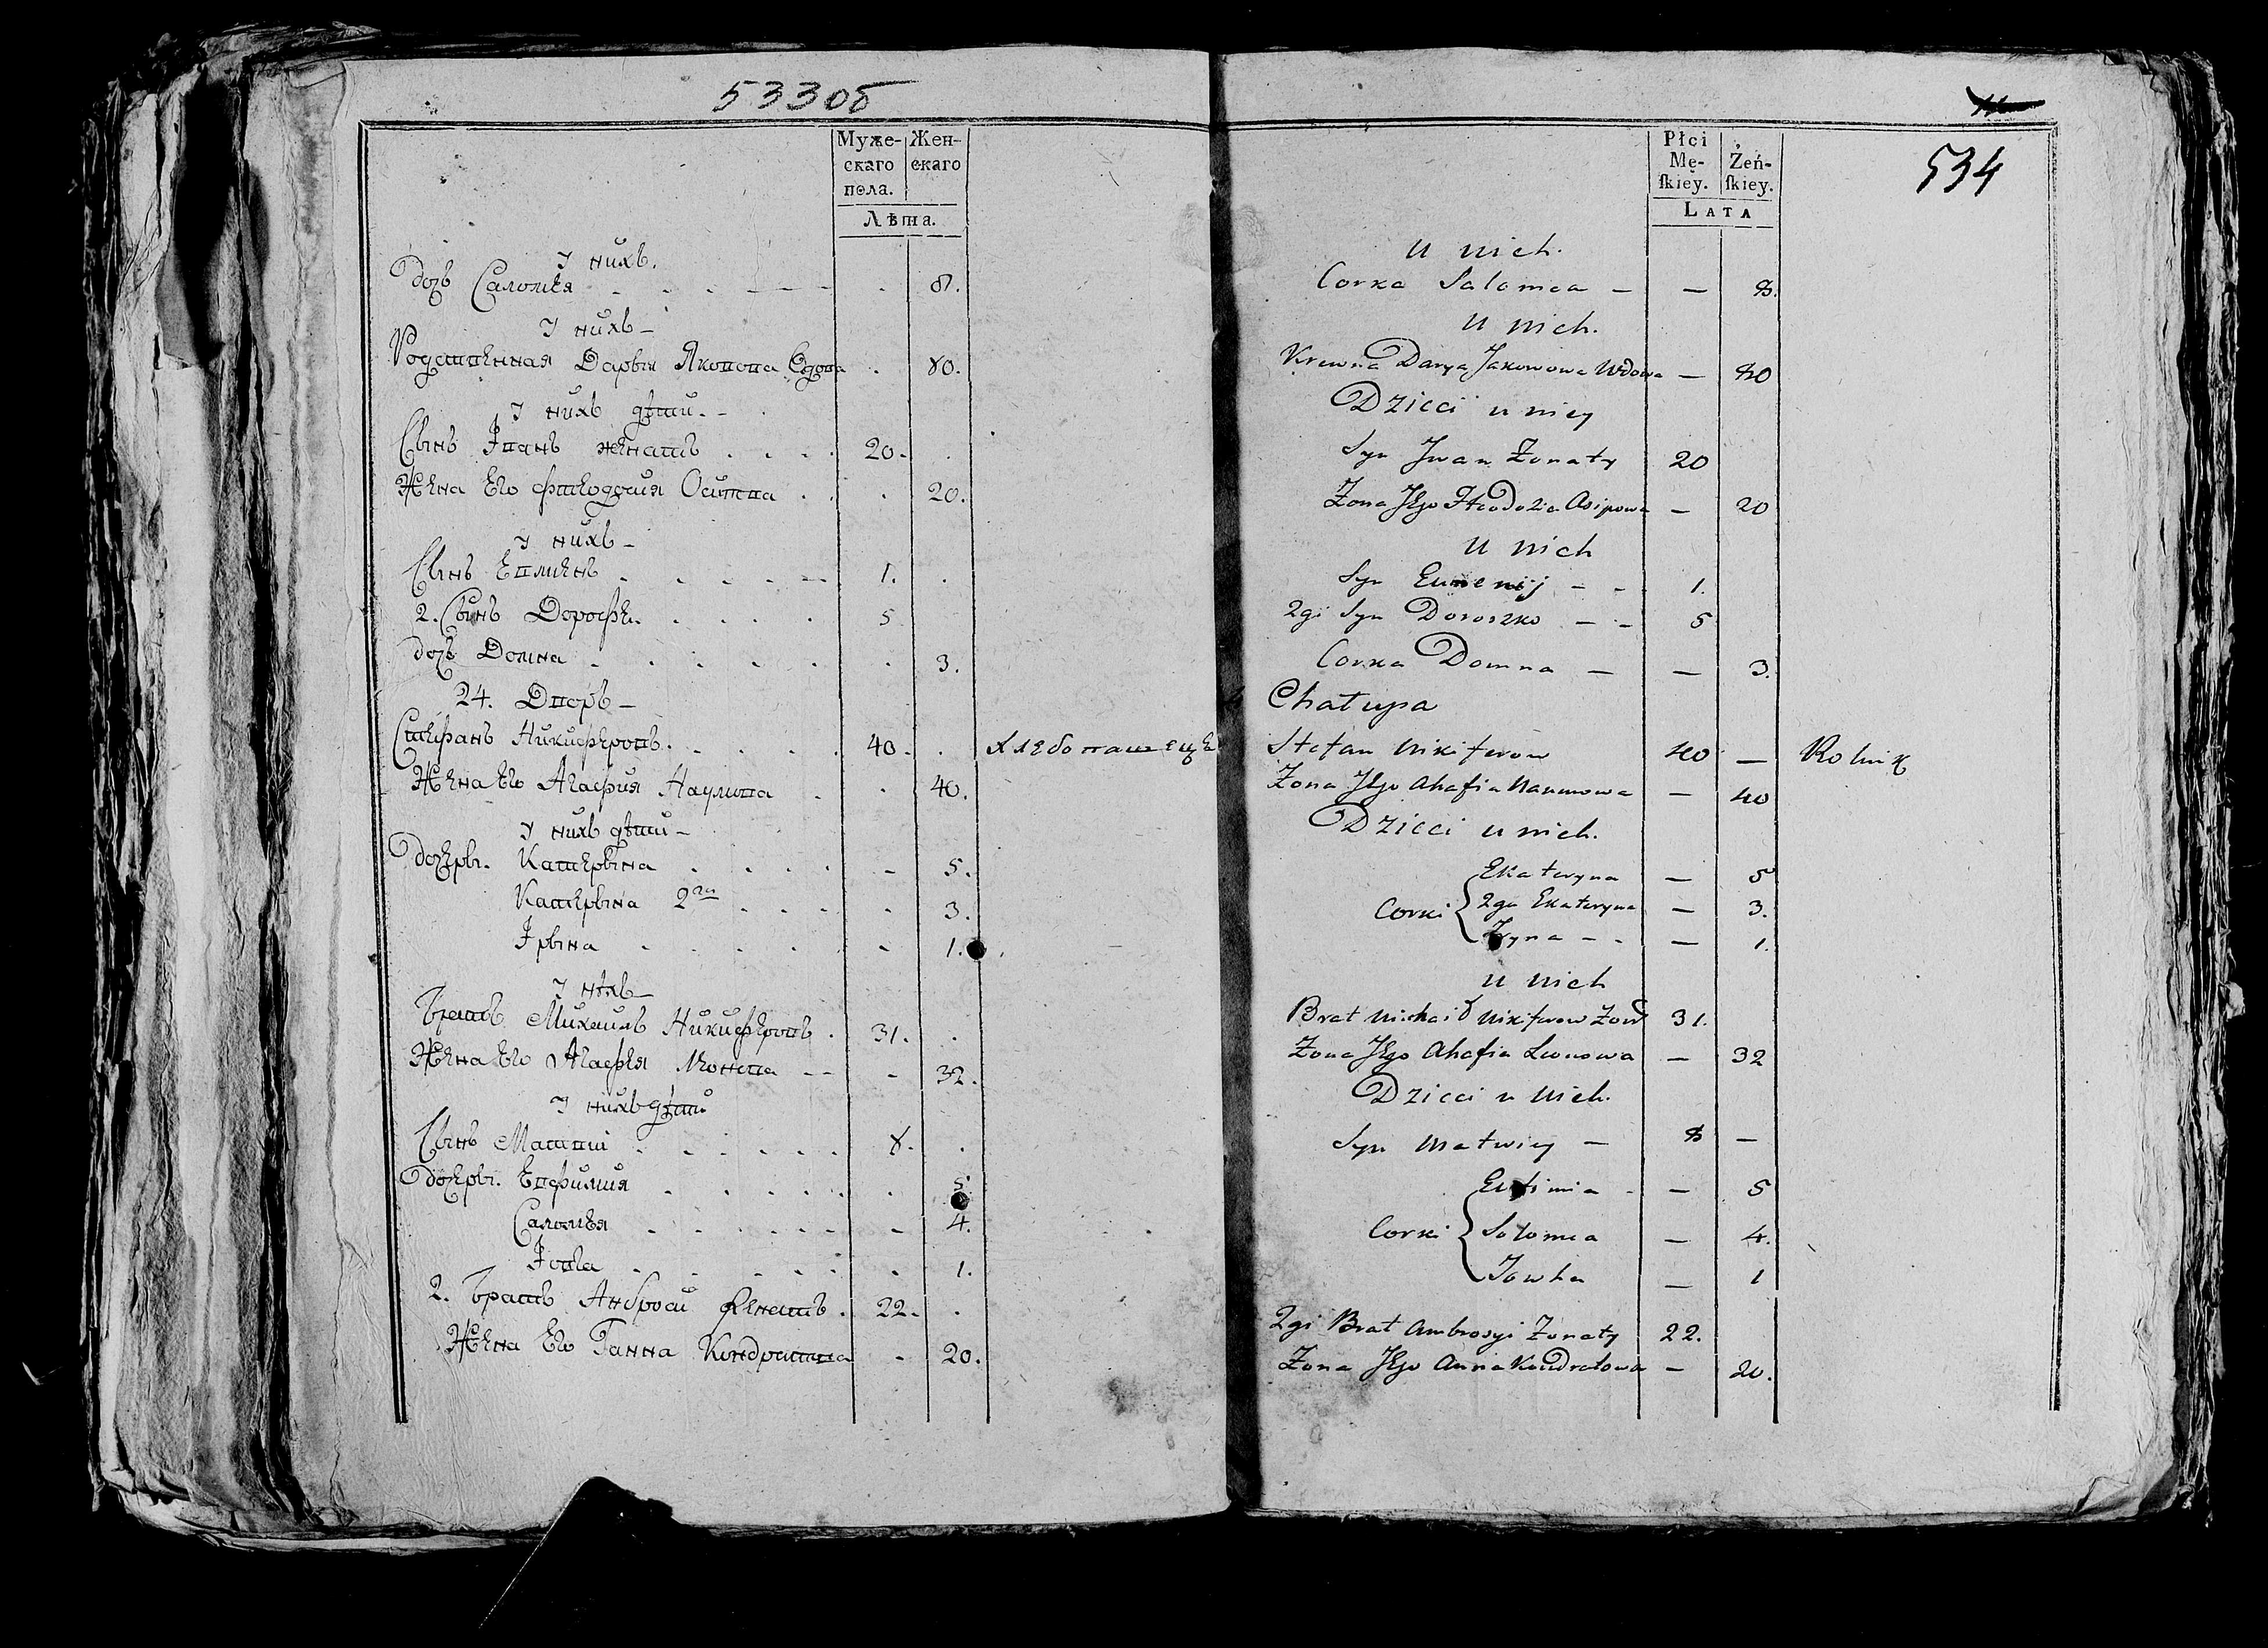 533 об
Муже-
скаго
пола.
Жен-
скаго
Лѣта.
У нихъ.
Дочь Саломея 8.
У нихъ
Родственная Дарья Яковова Вдова 80.
У нихъ дѣти.
Сынъ Іванъ женатъ 20.
Жена Его Фтеодосия Осипова 20.
У нихъ
Сынъ Евменъ 1.
2. Сынъ Дорофѣй 5
Дочь Домна 3.
24. Дворъ
Стефанъ Никифоровъ. 40. Хлебопашецъ
Жена Его Агафия Наумова 40.
У нихъ дѣти
Дочери. Катерына 5.
Катерына 2я 3.
Ірына 1.
У нихъ
Братъ Михаилъ Никифоровъ 31.
Жена Его Агафея 32.
У нихъ дѣти
Сынъ Матвій 8.
Дочери. Евфимия 5.
Саломея 4.
Іовга 1.
2. Братъ Анброси женатъ 22.
Жена Его Ганна Кондратова 20.
534
Płci
Mę-
skiey.
Żeń-
skiey.
LATA
u nich.
Corka Salomea — — 8.
u nich.
Krewna Darya Jakowowa Wdowa — 80
Dzieci u niey
Syn Jwan Żonaty 20
Żona Jego Fteodozia Asipowa — 20
u nich
Syn Eumenij 1.
2gi Syn Doroszko 5
Corka Domna — — 3.
Chałupa
Stefan Nikiferow 40 — Rolnik
Żona Jego Ahafia Naumowa — 40
Dzieci u nich.
Ekateryna — 5
Corki 2ga Ekateryna — 3.
Jryna — 1.
u nich
Brat Michaił Nikiferow Żon 31.
Żona Jego Ahafia Leonowa — 32
Dzieci u nich.
Syn Matwiey — 8 —
Eufimia — 5
Corki Solomea — 4.
Jowha — 1
2gi Brat Ambrosyi Żonaty 22.
Żona Jego Anna Kondratowa — 20.